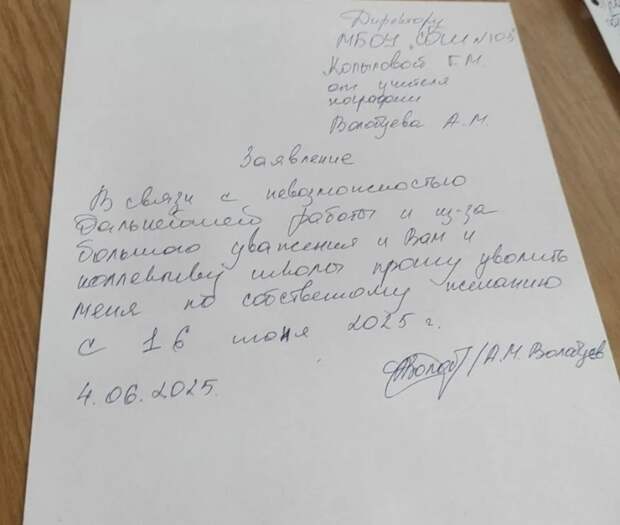 Директору
МБОУ "СОШ №103
Копыловой Г.М.
от учителя
географии
Волобуева А.М.
Заявление
В связи с невозможностью
дальнейшей работы и из-за
большого уважения к Вам и
коллективу школы прошу уволить
меня по собственному желанию
с 16 июня 2025 г.
4.06.2025.
/А.М. Волобуев